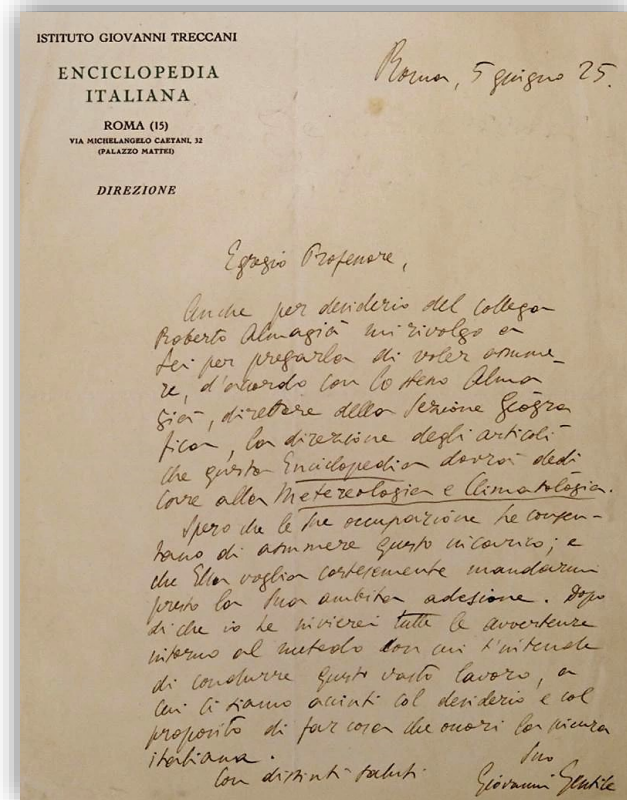 ISTITUTO GIOVANNI TRECCANI
ENCICLOPEDIA
ITALIANA
ROMA (15)
VIA MICHELANGELO CAETANI, 32
(PALAZZO MATTEI)
DIREZIONE
Roma, 5 giugno 25.
Egregio Professore,
Anche per desiderio del collega
Roberto Almagià mi rivolgo a
Lei per pregarla di voler assume-
re, d'accordo con lo stesso Alma
già, direttore della Sezione Geogra
fica, la direzione degli articoli
che questa Enciclopedia dovrà dedi
care alla Metereologia e Climatologia.
Spero che le Sue occupazioni Le consen-
tano di assumere questo incarico; e
che Ella voglia cortesemente mandarmi
presto la Sua ambita adesione. Dopo
di che io Le invierei tutte le avvertenze
intorno al metodo con cui s'intende
di condurre questo vasto lavoro, a
cui ci siamo accinti col desiderio e col
proposito di far cosa che onori la scienza
italiana.
Con distinti saluti
Suo
Giovanni Gentile